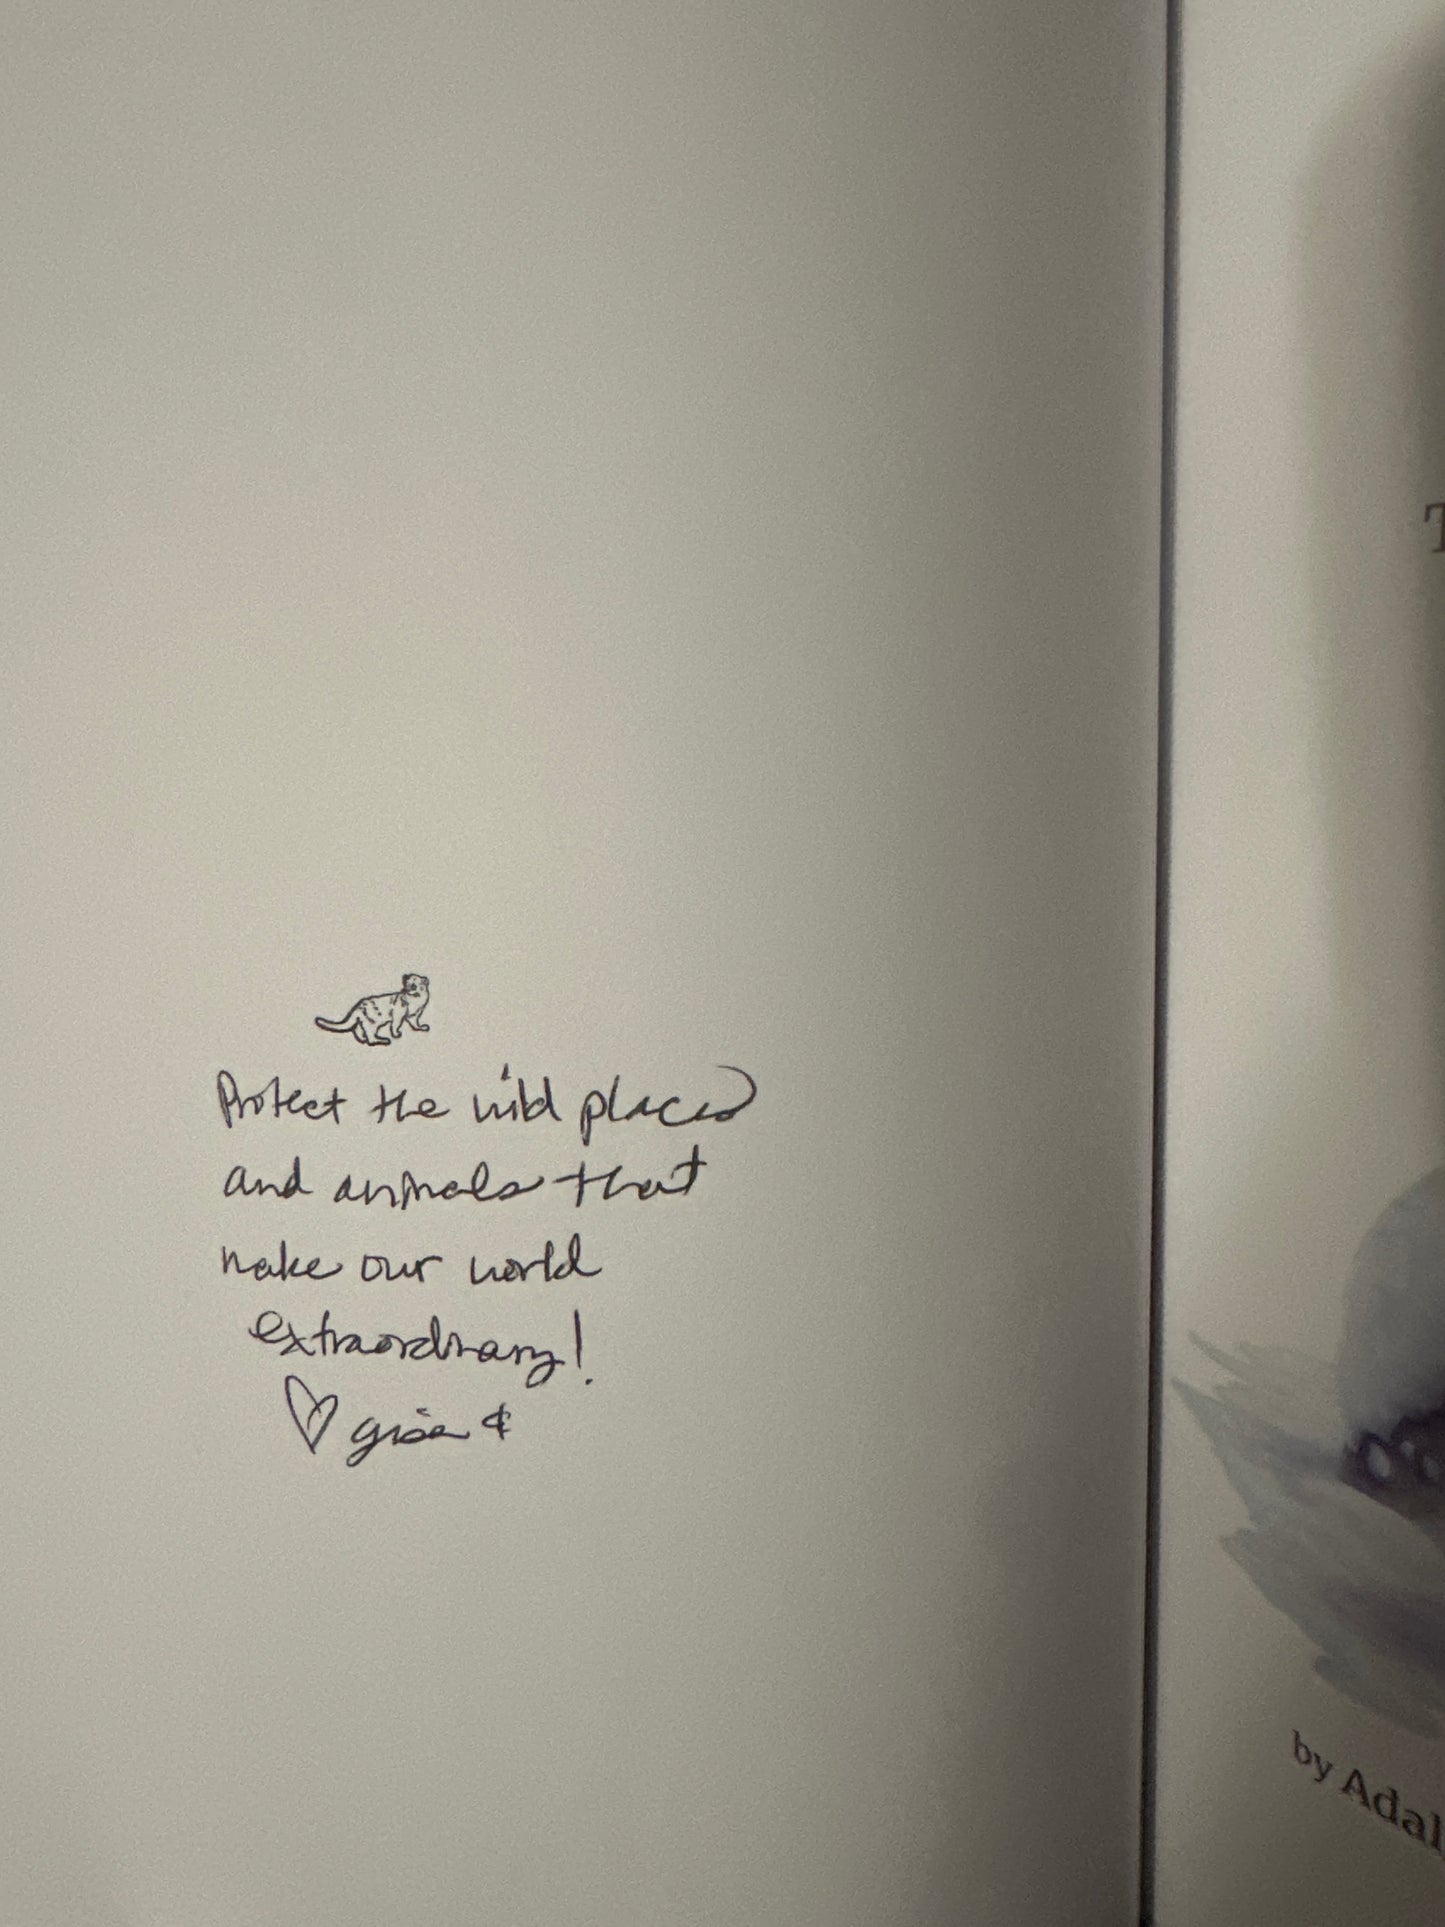 Protect the wild places
and animals that
make our world
extraordinary!
♡ &
T
by Adal